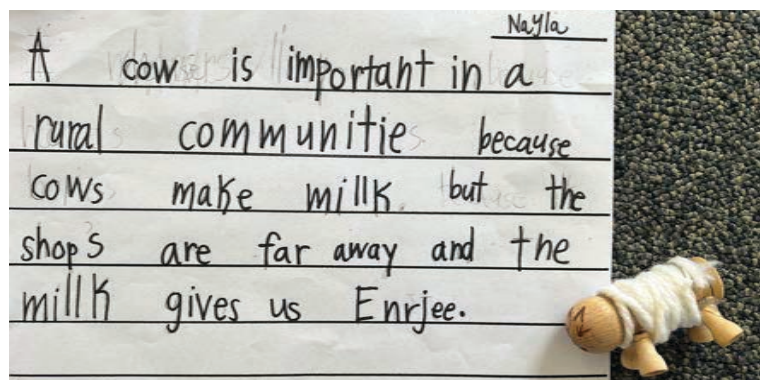 Nayla
A cow is important in a
rural communitie because
cows make millk. but the
shop's are far away and the
millk gives us Enrjee.